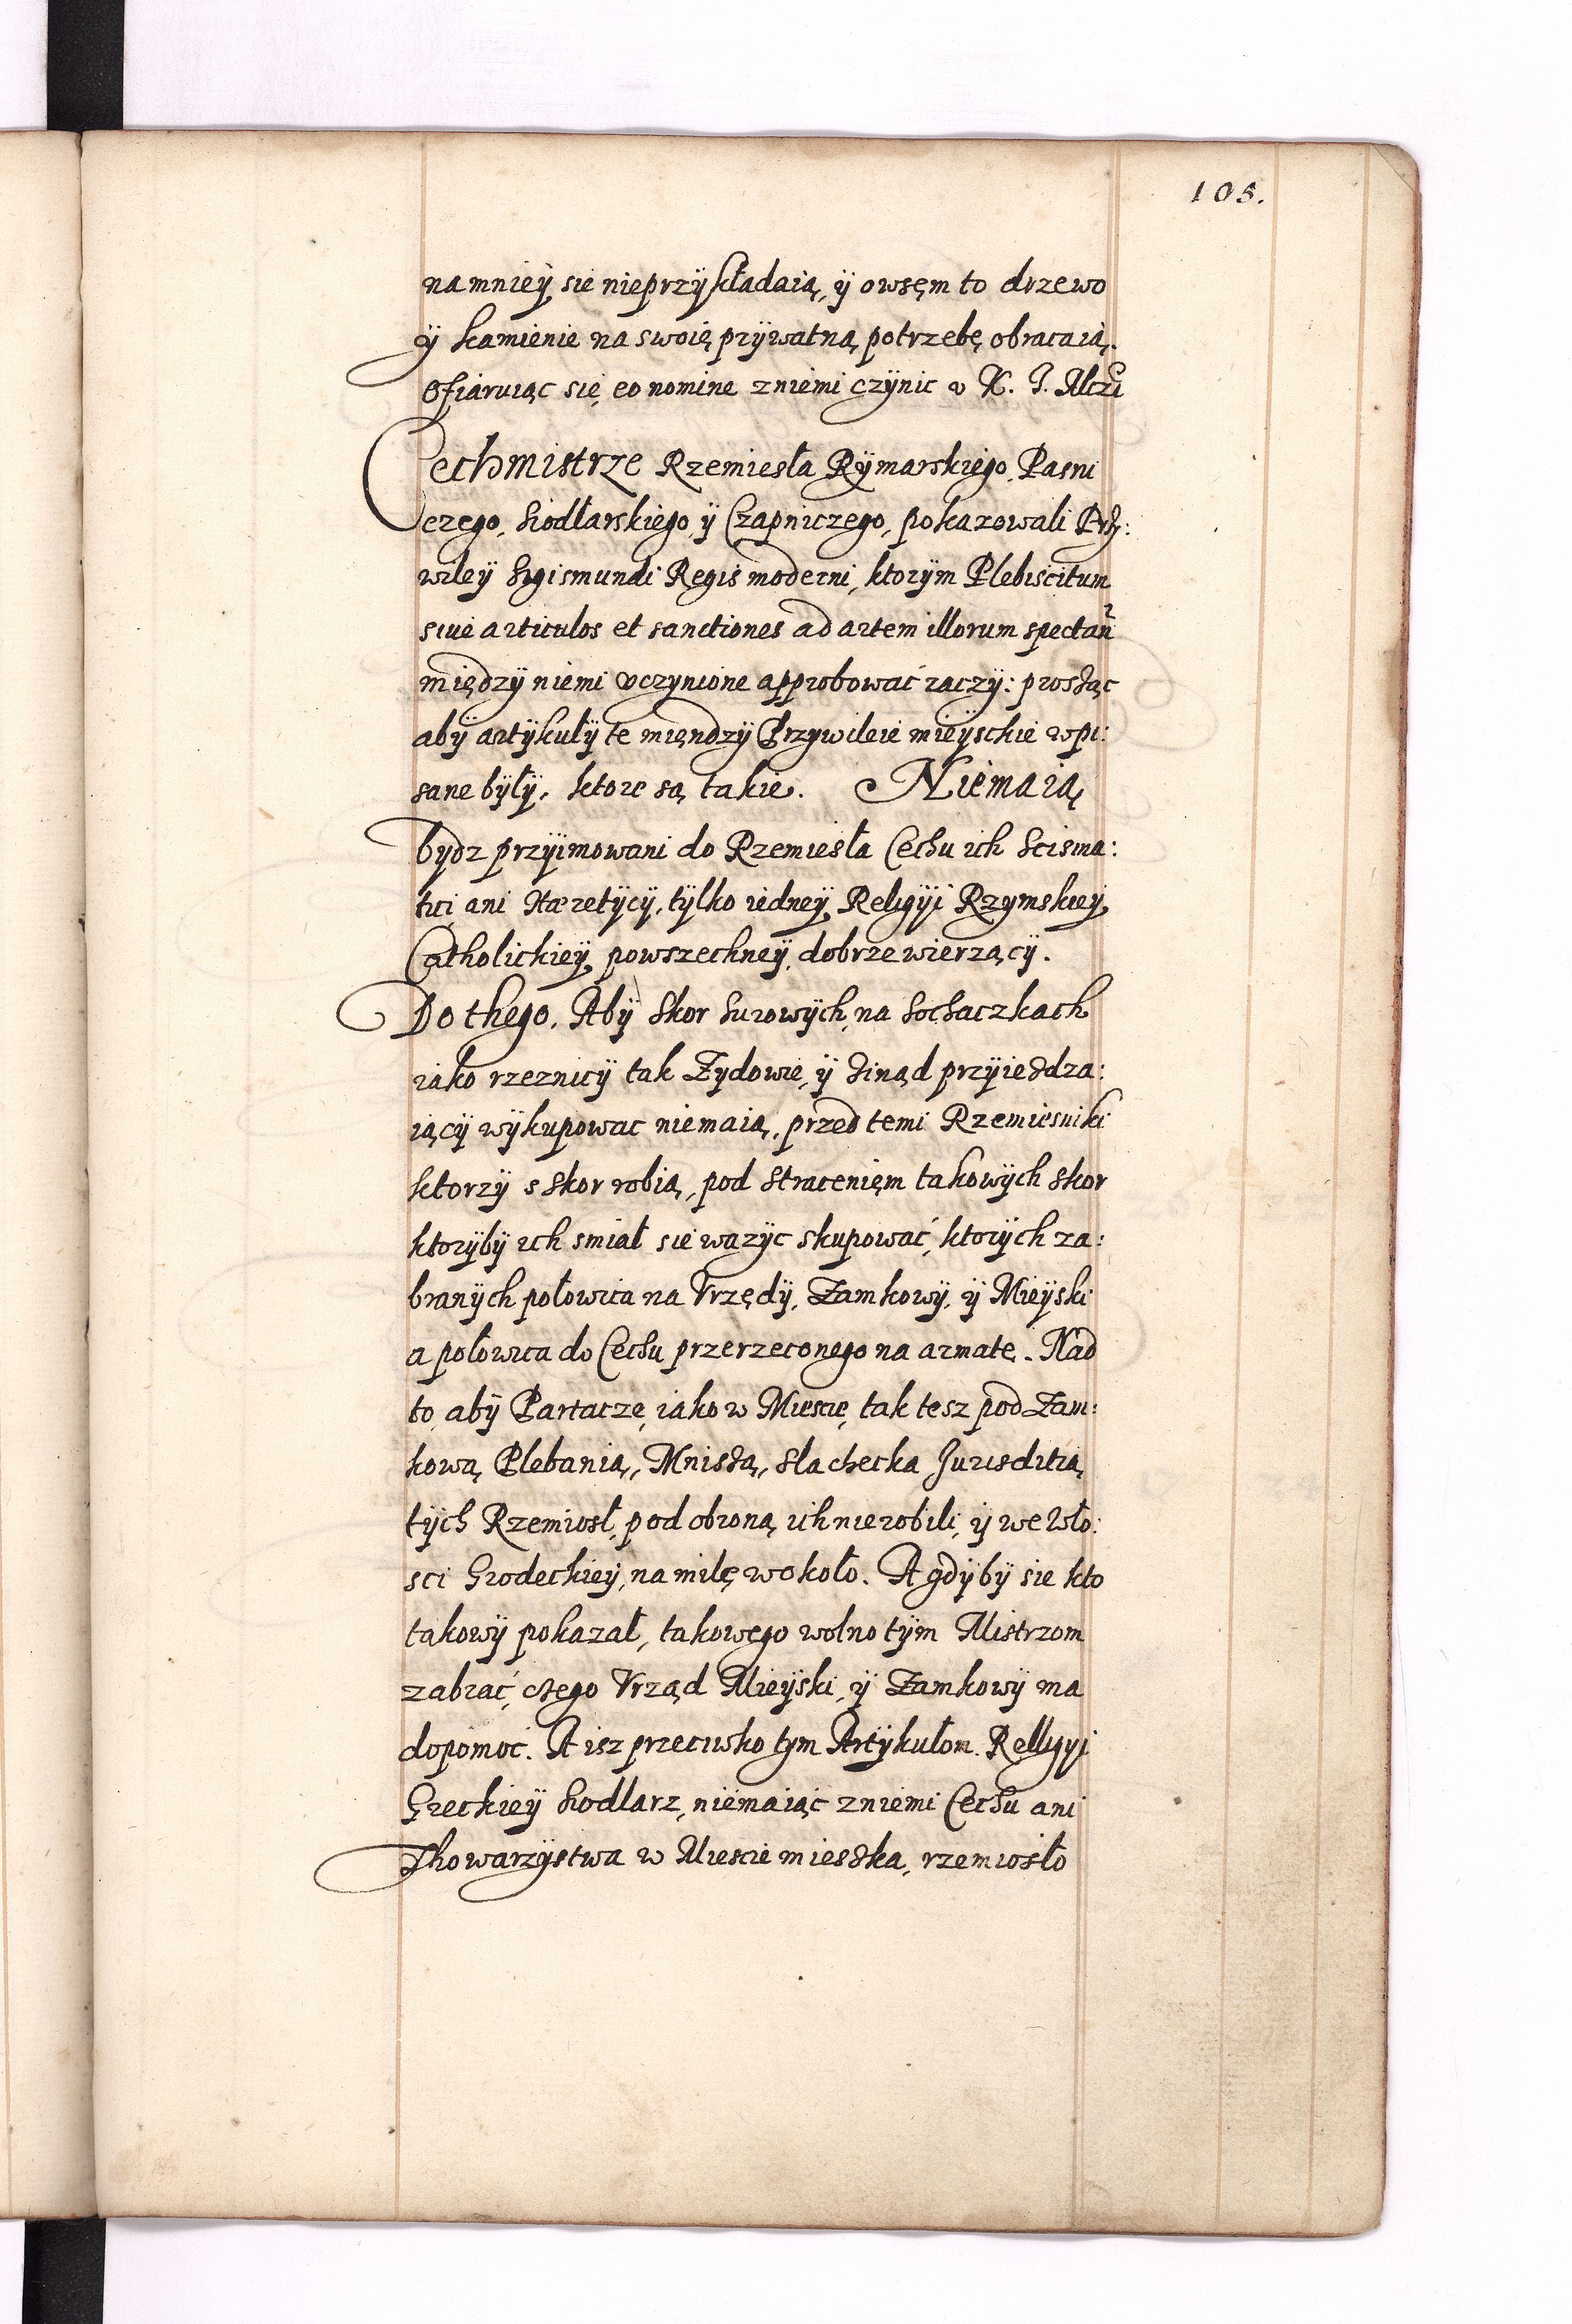 105.
namnieÿ sie nieprzÿkładaią, ÿ owsęm to drzewo
ÿ kamienie na swoię prÿwatną potrzebę obracaią.
Ofiaruiąc się eo nomine zniemi czÿnic v K. J. Mczi
Cechmistrze Rzemiesła Rÿmarskiego, Pasni
czego, Siodlarskiego, ÿ Czapniczego, pokazowali Przÿ:
wileÿ Sigismundi Regis moderni, ktorÿm Plebiscitum
siue articulos et sanctiones ad artem illorum spectan
międzÿ niemi vczynione approbować raczÿ: proszac
abÿ artÿkułÿ te miendzÿ Przywileie mieÿschie wpi:
sane bÿłÿ, ktore są takie. Niemaią
bydz przÿimowani do Rzemiesła Cechu ich Scisma:
tici ani Hæretÿcÿ, tÿlko iedneÿ Religÿi Rzymskieÿ
Catholickieÿ powszechneÿ dobrze wierzącÿ.
Do thego. Abÿ Skor Surowÿch na Sochaczkach
iako rzeznicÿ tak Zydowie, ÿ Zinąd przÿieżdza:
iącÿ wÿkupowac niemaią, przed temi Rzemiesniki
ktorzÿ s Skor robią, pod Stracenięm takowÿch Skor
ktorÿbÿ ich smiał sie wazÿc skupować, ktorÿch za:
branÿch połowica na Vrzędÿ, Zamkowÿ, ÿ Mieÿski
a połowica do Cechu przerzeconego na armatę. Nad
to abÿ Partacze, iako w Miescie, tak tesz pod Zam:
kową Plebanią, Mniszą, Slachecka Jurisditią
tÿch Rzemiosł, pod obroną ich nierobili, ÿ we Wło:
sci Grodeckieÿ, na milę wokoło. A gdÿbÿ sie kto
takowÿ pokazał, takowego wolno tÿm Mistrzom
zabrać, czego Vrząd Mieÿski, ÿ Zamkowÿ ma
dopomoc. A isz przeciwko tym Artÿkułom. Relligÿi
Greckieÿ Siodlarz, niemaiąc zniemi Cechu ani
Thowarzÿstwa w Miescie mieszka, rzemiosło